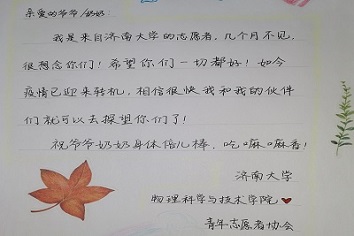 亲爱的爷爷/奶奶:
我是来自济南大学的志愿者,几个月不见,
很想念你们!希望你们一切都好!如今
疫情已迎来转机,相信很快我和我的伙伴
们就可以去探望你们了!
祝爷爷奶奶身体倍儿棒,吃嘛嘛香!
济南大学
物理科学与技术学院
青年志愿者协会